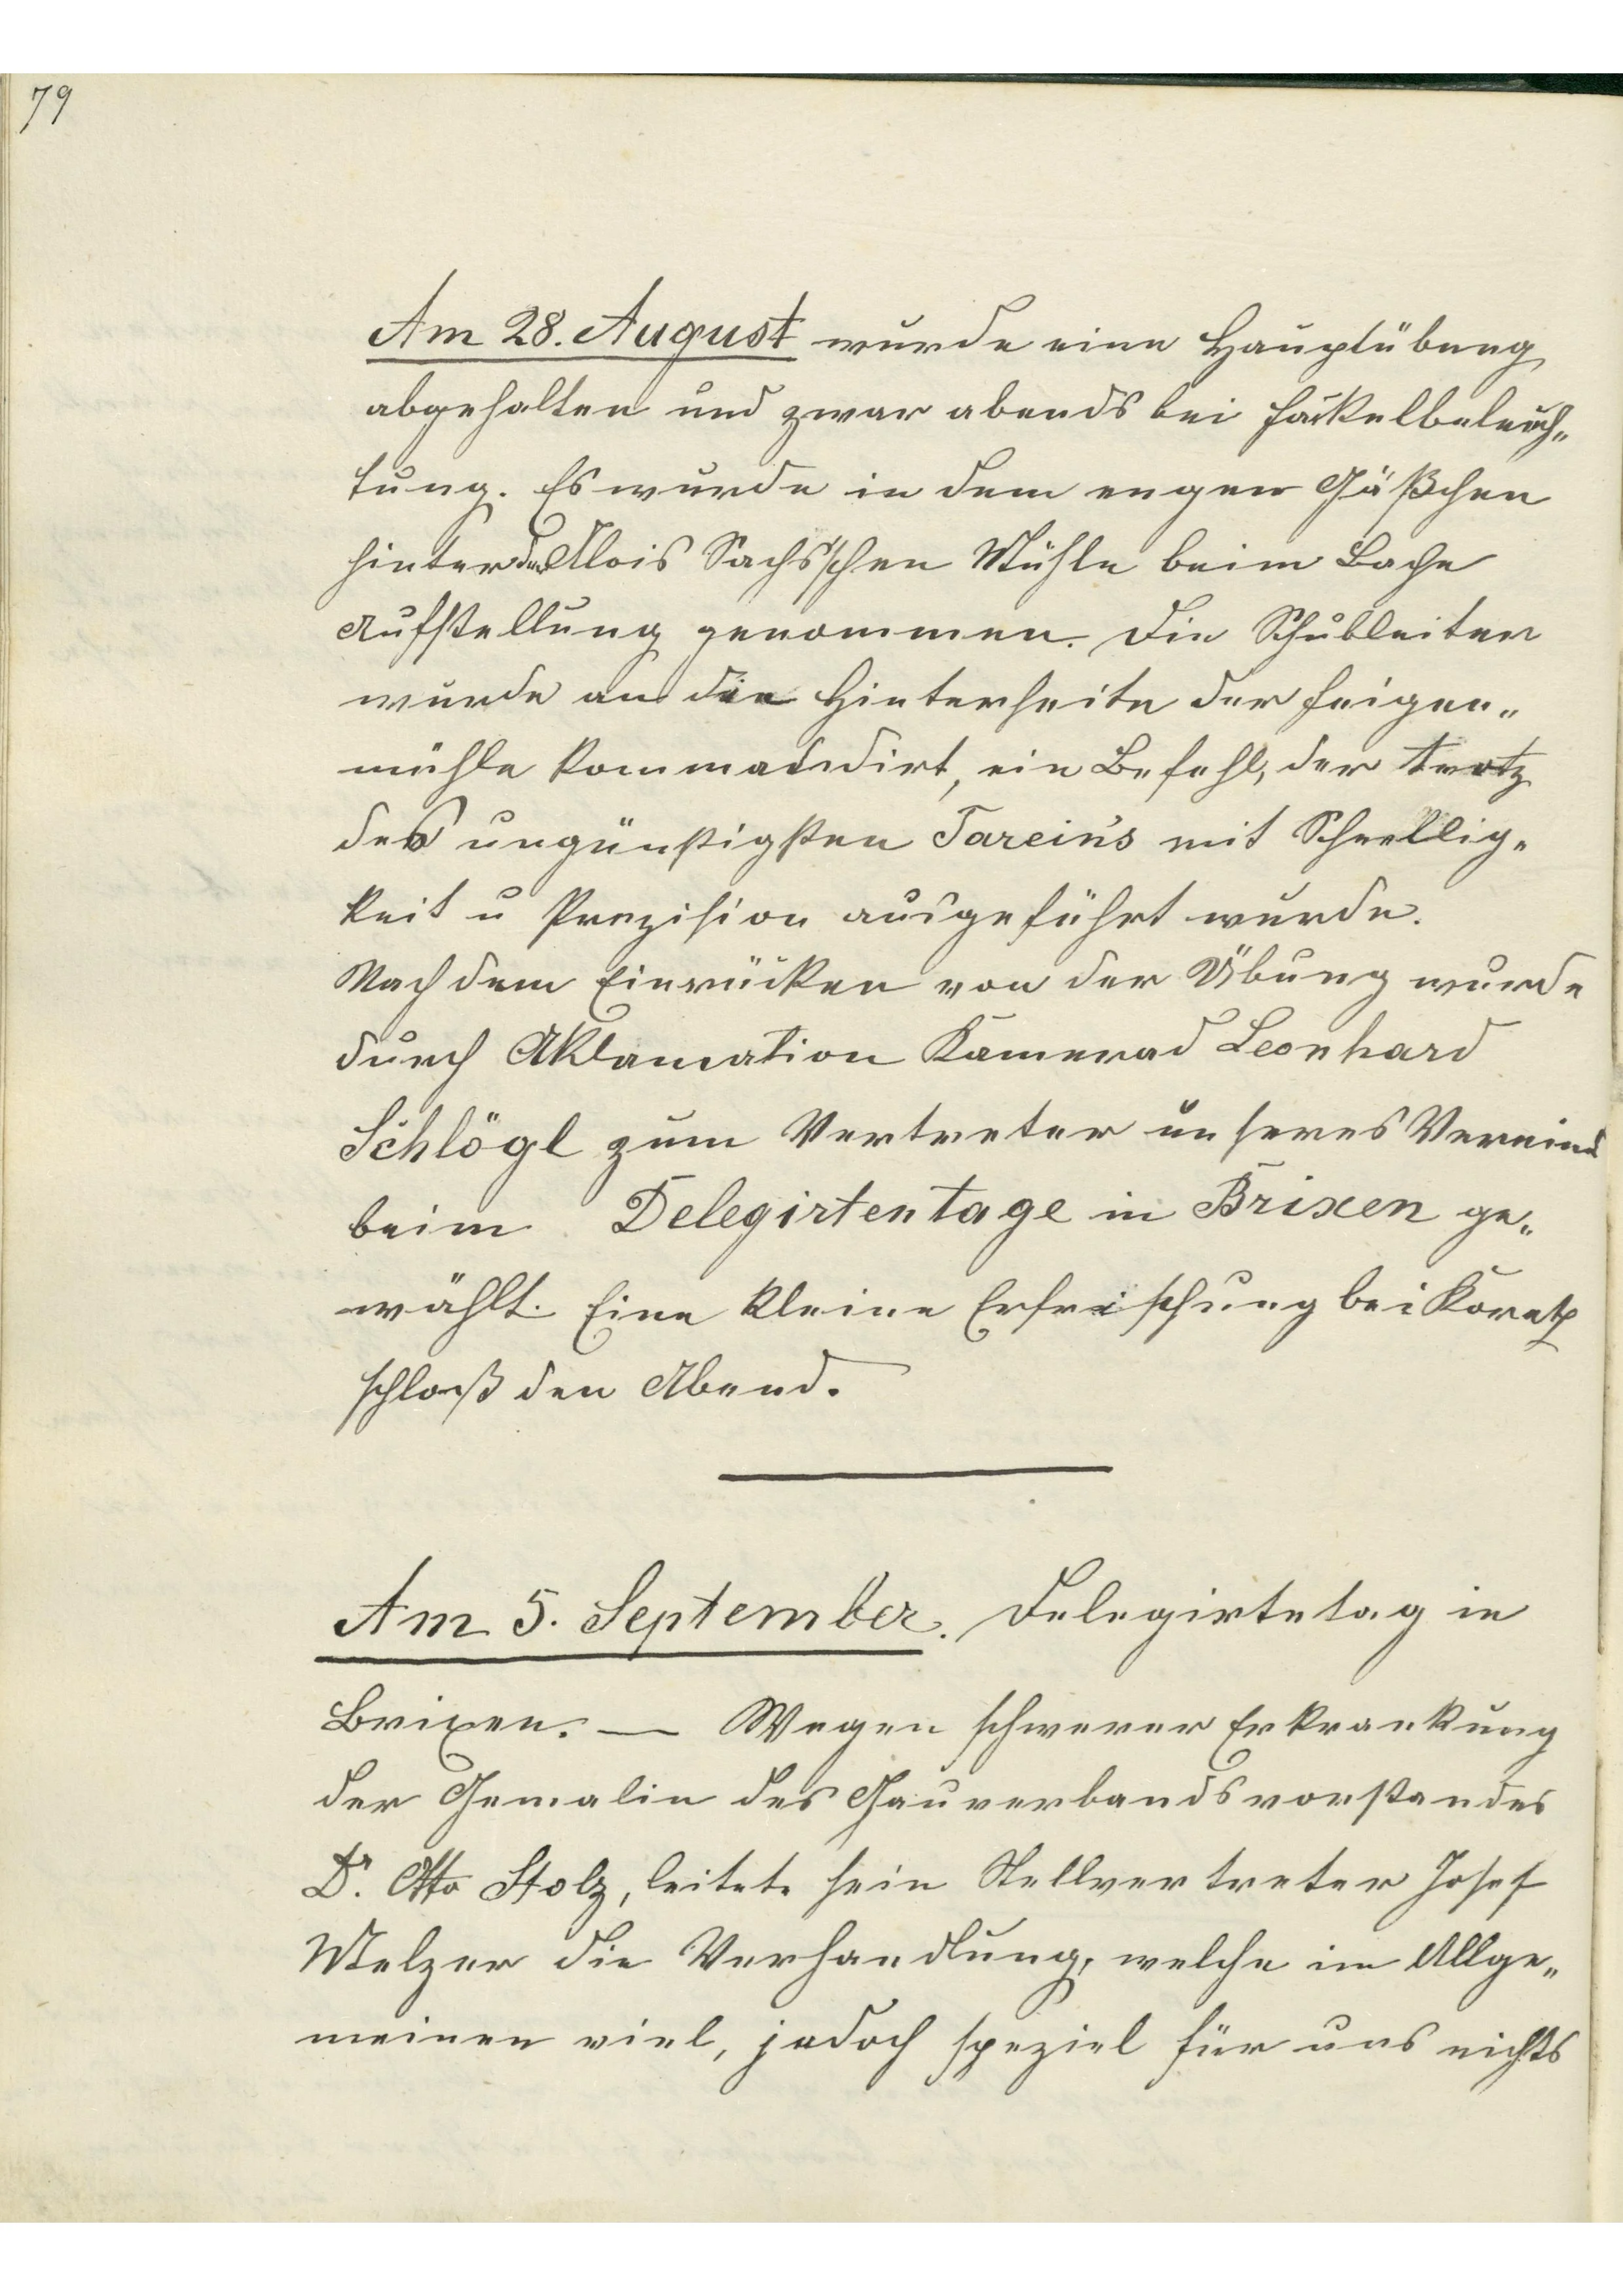 79
Am 28. August wurde eine Hauptübung
abgehalten und zwar abends bei Fackelbeleuch„
tung. Es wurde in dem engen Gäßchen
hinter der Alois Sachs'schen Mühle beim Bache
Aufstellung genommen. Die Schubleiter
wurde an die Hinterseite der Feigen„
mühle kommandirt, ein Befehl, der trotz
des ungünstigsten Tareins mit Schnellig„
keit u Prezision ausgeführt wurde.
Nach dem Einrücken von der Übung wurde
durch Aklamation Kamerad Leonhard
Schlögl zum Vertreter unseres Vereins
beim Delegirtentage in Brixen ge„
wählt. Eine kleine Erfrischung bei Koretz
schloß den Abend.
Am 5. September. Delegirtetag in
Brixen. — Wegen schwerer Erkrankung
der Gemalin des Gauverbandsvorstandes
Dr. Otto Stolz, leitete sein Stellvertreter Josef
Melzer die Verhandlung, welche im Allge„
meinen viel, jedoch speziel für uns nichts